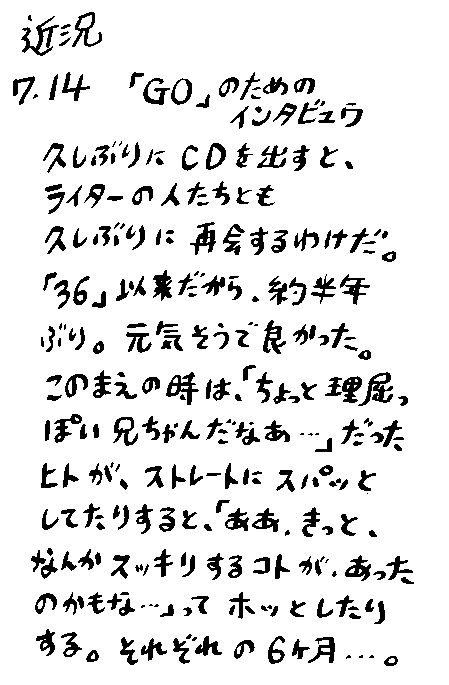 近況
7.14 「GO」のための
インタビュウ
久しぶりにCDを出すと、
ライターの人たちとも
久しぶりに再会するわけだ。
「36」以来だから、約半年
ぶり。元気そうで良かった。
このまえの時は、「ちょっと理屈っ
ぽい兄ちゃんだなあ…」だった
ヒトが、ストレートにスパッと
してたりすると、「ああ、きっと、
なんかスッキリするコトが、あった
のかもな…」ってホッとしたり
する。それぞれの6ヶ月…。